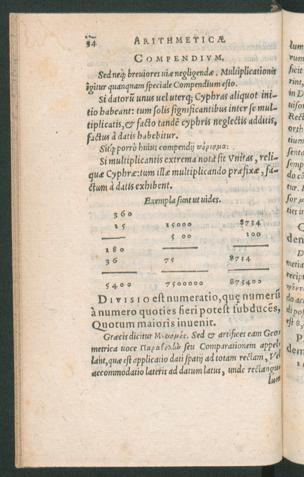 34 ARITHMETICÆ
COMPENDIVM.
Sed neq; breuiores uiæ negligendæ. Multiplicationis
igitur quanquam speciale Compendium esto.
Si datorũ unus uel uterq; Cyphras aliquot ini-
tio habeant: tum solis significantibus inter se mul-
tiplicatis, & facto tandẽ cyphris neglectis additis,
factus à datis habebitur.
Sitq; porrò huius compendij πόρισμα:
Si multiplicantis extrema nota sit Vnitas, reli-
quæ Cyphræ: tum illæ multiplicando præfixæ, fa-
ctum à datis exhibent.
Exempla sunt ut uides.
360
15 15000 8714
5 00 100
180
36 75 8714
5400 7500000 871400
DIVISIO est numeratio, quę numerũ
à numero quoties fieri potest subducẽs,
Quotum maioris inuenit.
Græcis dicitur Μερισμός. Sed & artifices eam Geo
metrica uoce Παραβολὼ seu Comparationem appel
lant, quæ est applicatio dati spatij ad totam rectam, Vel
accommodatio lateris ad datum latus, unde rectangu
lum